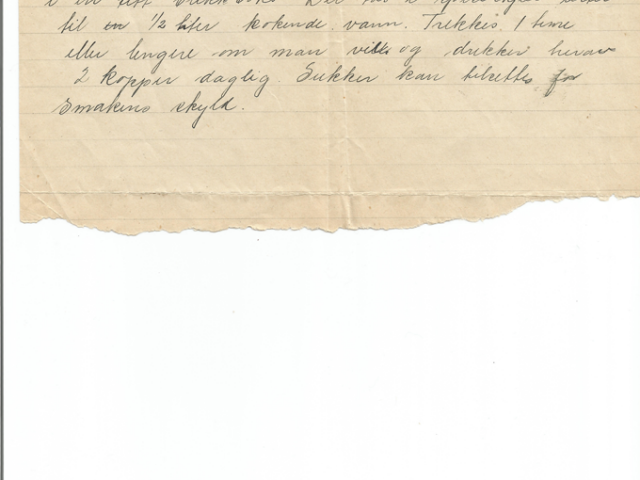 til en 1/2 liter kokende vann. Trekkes 1 time
eller lengere om man vill og drikker herav
2 kopper daglig. Sukker kan tilsettes for
Smakens skyld.